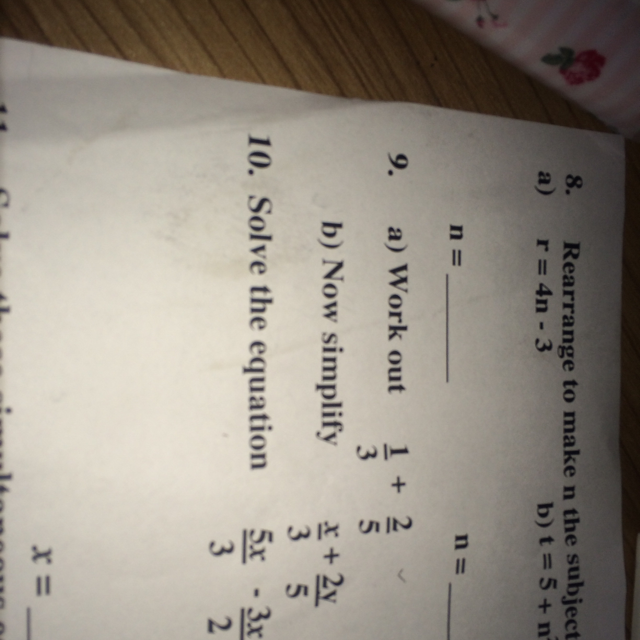 8. Rearrange to make n the subject
a) r = 4n - 3 b) t = 5 + n
n = ____ n = ____
9. a) Work out 1/3 + 2/5
b) Now simplify x/3 + 2y/5
10. Solve the equation 5x/3 - 3x/2
x = ____
11.